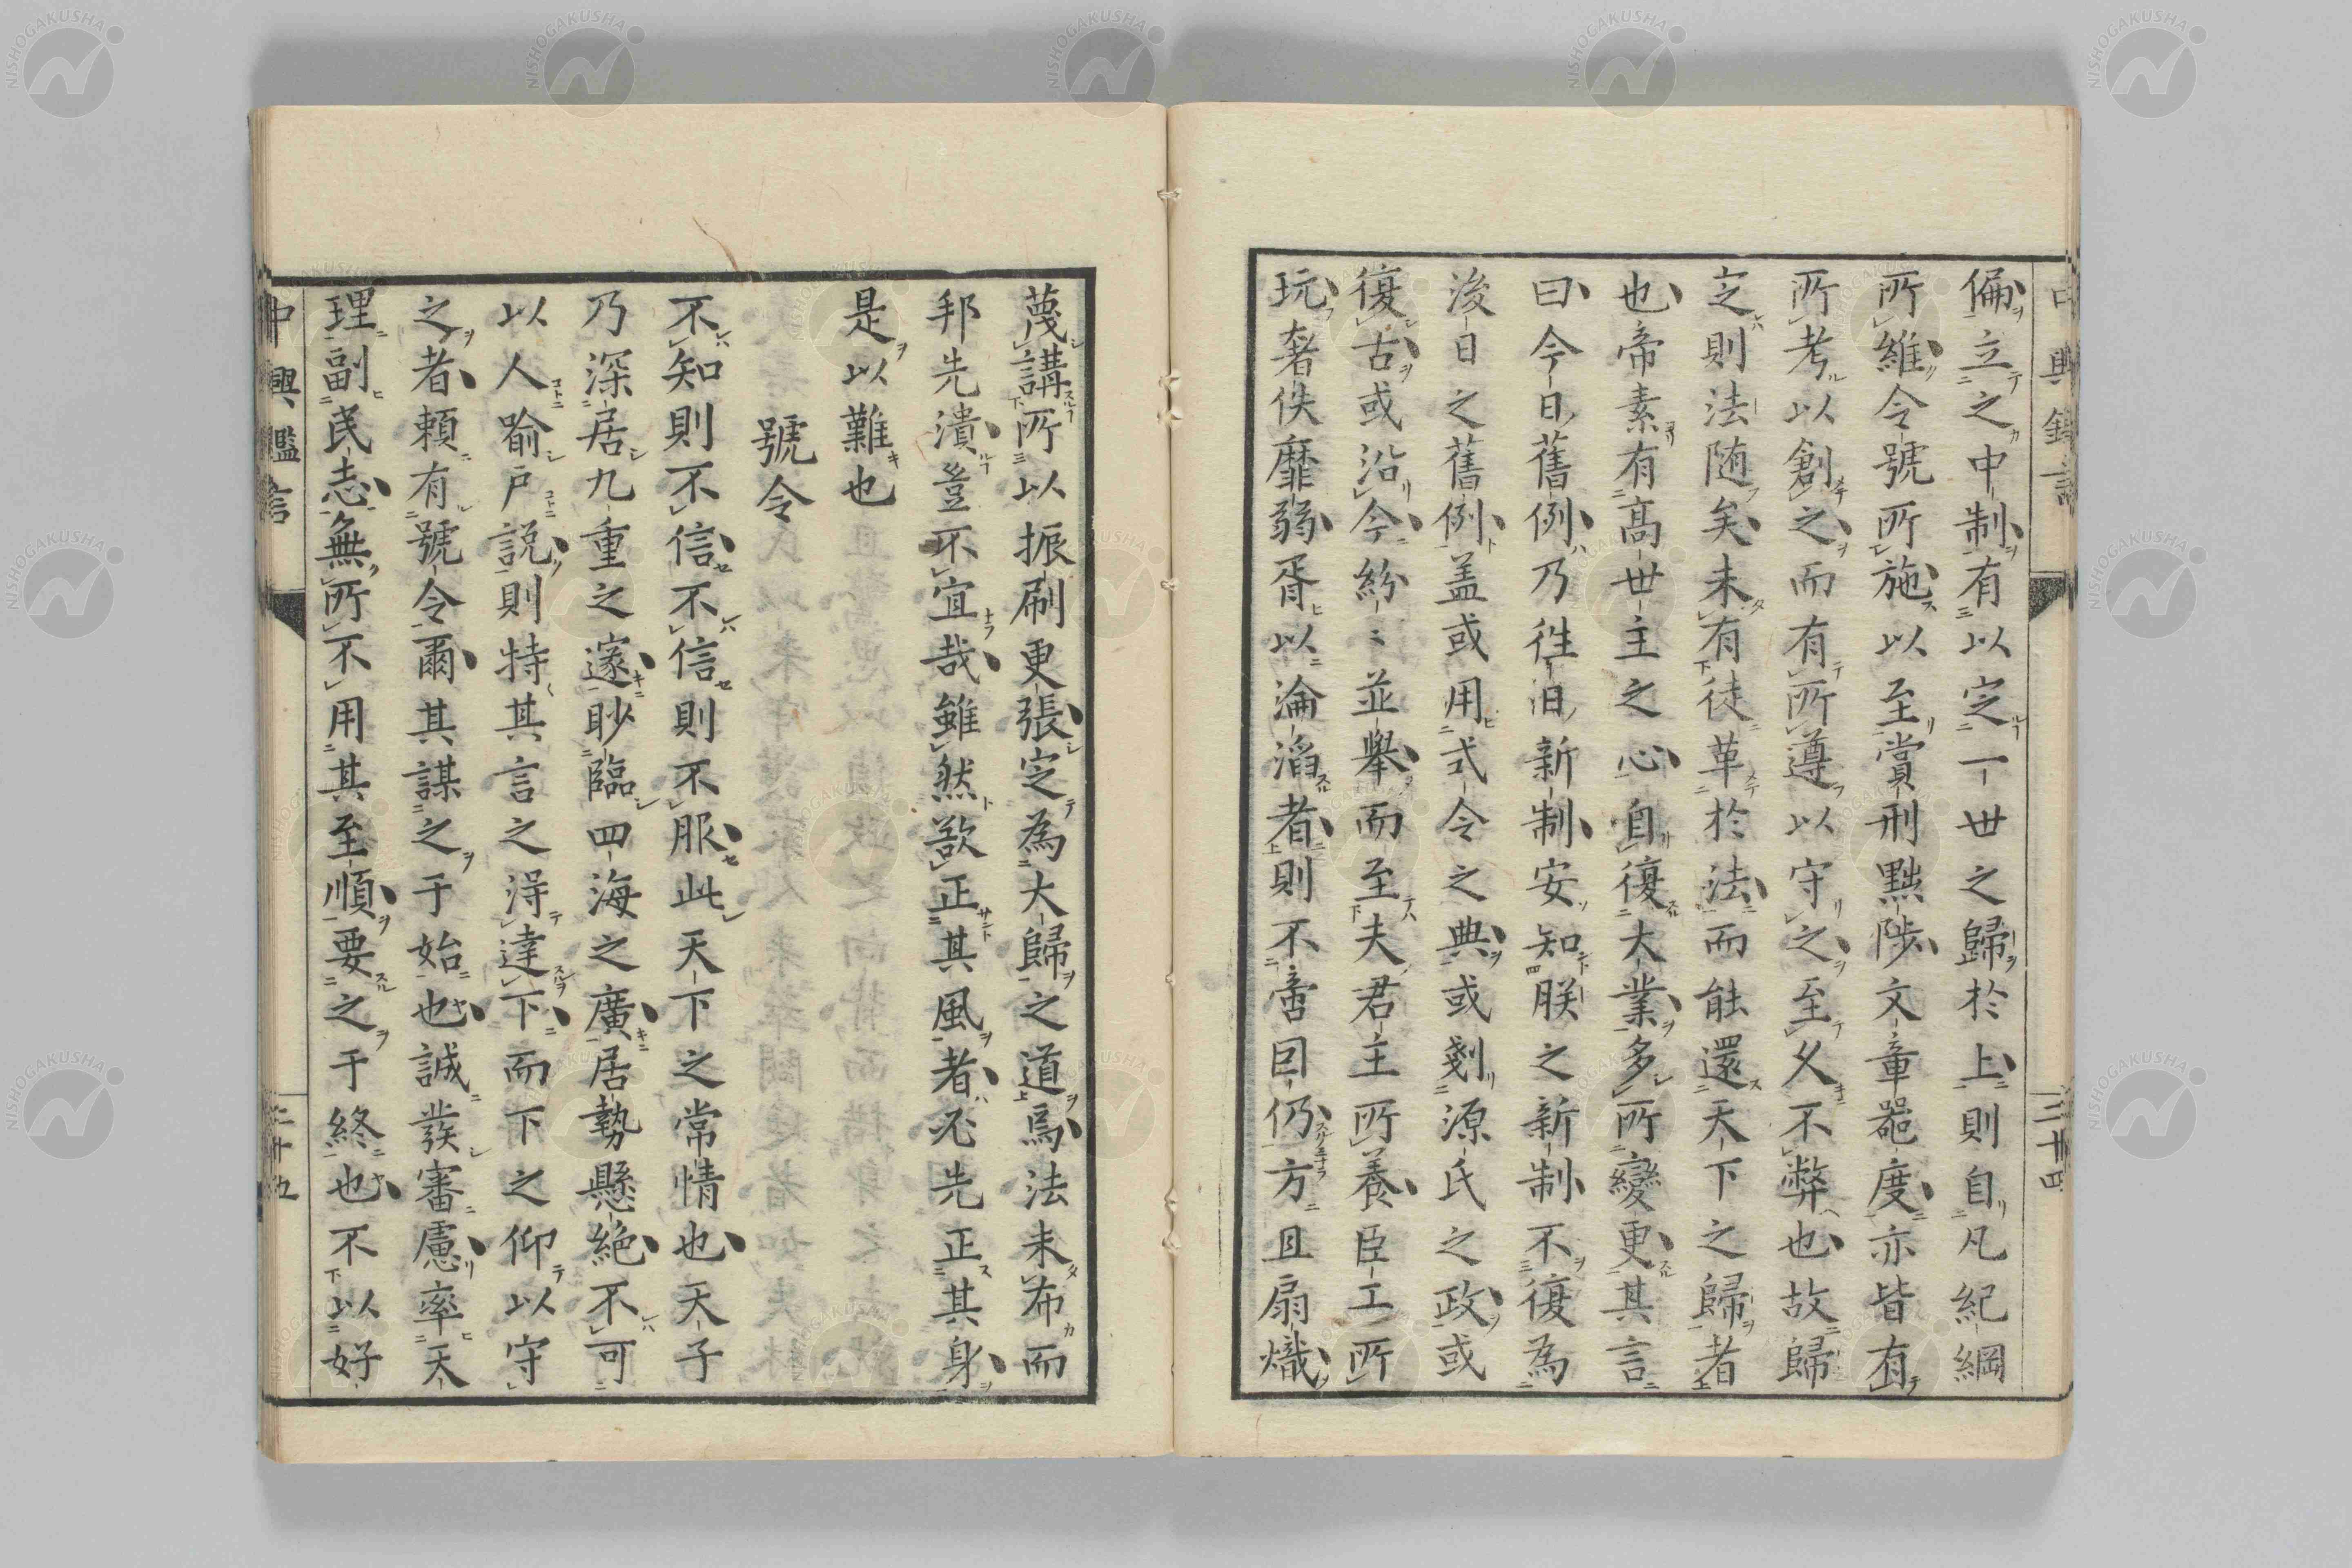 偏立之中制有以定一世之歸於上則自凡紀綱
所維令號所施以至賞刑黜陟文章器度亦皆有
所考以創之而有所遵以守之至久不弊也故歸
之則法随矣未有徒革於法而能還天下之歸者
也帝素有高世主之心自復大業多所變更其言
曰今日舊例乃徃日新制安知朕之新制不復為
後日之舊例盖或用式令之典或剗源氏之政或
復古或沿今紛〻並舉而至夫君主所養臣工所
玩奢佚靡弱胥以淪滔者則不啻因仍方且扇熾
蔑講所以振刷更張定為大歸之道焉法未布而
邦先潰豈不宜哉雖然欲正其風者必先正其身
是以難也
號令
不知則不信不信則不服此天下之常情也天子
乃深居九重之邃眇臨四海之廣居勢懸絶不可
以人喻戶説則特其言之得達下而下之仰以守
之者頼有號令爾其謀之于始也誠發審慮率天
理副民志無所不用其至順要之于終也不以好
中興鑑言
三十四
中興鑑言
NISHOGAKUSHA